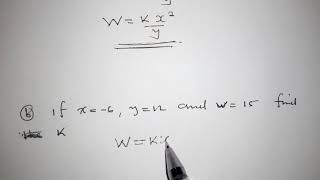 W = K x²
y
(b) if x = -6, y = 12 and w = 15 find
K
W = K x